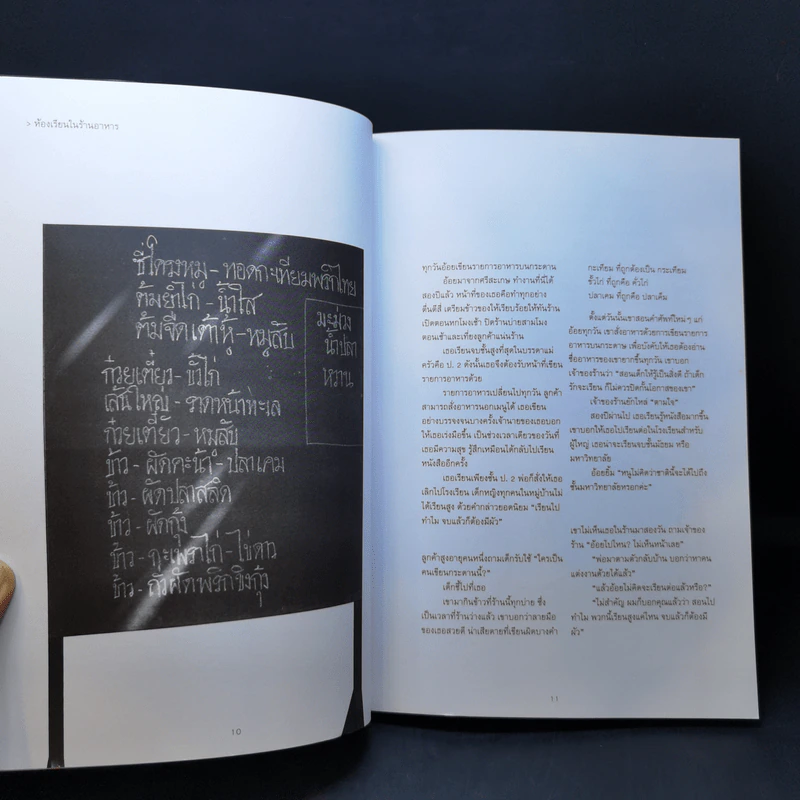 > ห้องเรียนในร้านอาหาร
ซี่โครงหมู - ทอดกะเทียมพริกไทย
ต้มยำไก่ - น้ำใส
ต้มจืดเต้าหู้ - หมูสับ
ก๋วยเตี๋ยว - ขั้วไก่
เส้นใหญ่ - ราดหน้าทะเล
ก๋วยเตี๋ยว - หมูสับ
ข้าว - ผัดคะน้า - ปลาเคม
ข้าว - ผัดปลาสลิด
ข้าว - ผัดกุ้ง
ข้าว - กะเพราไก่ - ไข่ดาว
ข้าว - ผัดพริกขิงกุ้ง
มะม่วง
น้ำปลา
หวาน
10
ทุกวันอ้อยเขียนรายการอาหารบนกระดาน
อ้อยมาจากศรีสะเกษ ทำงานที่นี่ได้
สองปีแล้ว หน้าที่ของเธอคือทำทุกอย่าง
ตื่นตีสี่ เตรียมข้าวของให้เรียบร้อยให้ทันร้าน
เปิดตอนหกโมงเช้า ปิดร้านบ่ายสามโมง
ตอนเช้าและเที่ยงลูกค้าแน่นร้าน
เธอเรียนจบชั้นสูงที่สุดในบรรดาแม่
ครัวคือ ป. 2 ดังนั้นเธอจึงรับหน้าที่เขียน
รายการอาหารด้วย
รายการอาหารเปลี่ยนไปทุกวัน ลูกค้า
สามารถสั่งอาหารนอกเมนูได้ เธอเขียน
อย่างบรรจงจนบางครั้งเจ้านายของเธอบอก
ให้เธอเร่งมือขึ้น เป็นช่วงเวลาเดียวของวันที่
เธอมีความสุข รู้สึกเหมือนได้กลับไปเรียน
หนังสืออีกครั้ง
เธอเรียนเพียงชั้น ป. 2 พ่อก็สั่งให้เธอ
เลิกไปโรงเรียน เด็กหญิงทุกคนในหมู่บ้านไม่
ได้เรียนสูง ด้วยคำกล่าวยอดนิยม "เรียนไป
ทำไม จบแล้วก็ต้องมีผัว"
ลูกค้าสูงอายุคนหนึ่งถามเด็กรับใช้ "ใครเป็น
คนเขียนกระดานนี้?"
เด็กชี้ไปที่เธอ
เขามากินข้าวที่ร้านนี้ทุกบ่าย ซึ่ง
เป็นเวลาที่ร้านว่างแล้ว เขาบอกว่าลายมือ
ของเธอสวยดี น่าเสียดายที่เขียนผิดบางคำ
กะเทียม ที่ถูกต้องเป็น กระเทียม
ขั้วไก่ ที่ถูกคือ คั่วไก่
ปลาเคม ที่ถูกคือ ปลาเค็ม
ตั้งแต่วันนั้นเขาสอนคำศัพท์ใหม่ๆ แก่
อ้อยทุกวัน เขาสั่งอาหารด้วยการเขียนรายการ
อาหารบนกระดาษ เพื่อบังคับให้เธอต้องอ่าน
ชื่ออาหารของเขายากขึ้นทุกวัน เขาบอก
เจ้าของร้านว่า "สอนเด็กให้รู้เป็นสิ่งดี ถ้าเด็ก
รักจะเรียน ก็ไม่ควรปิดกั้นโอกาสของเขา"
เจ้าของร้านยักไหล่ "ตามใจ"
สองปีผ่านไป เธอเรียนรู้หนังสือมากขึ้น
เขาบอกให้เธอไปเรียนต่อในโรงเรียนสำหรับ
ผู้ใหญ่ เธอน่าจะเรียนจบชั้นมัธยม หรือ
มหาวิทยาลัย
อ้อยยิ้ม "หนูไม่คิดว่าชาตินี้จะได้ไปถึง
ชั้นมหาวิทยาลัยหรอกค่ะ"
เขาไม่เห็นเธอในร้านมาสองวัน ถามเจ้าของ
ร้าน "อ้อยไปไหน? ไม่เห็นหน้าเลย"
"พ่อมาตามตัวกลับบ้าน บอกว่าหาคน
แต่งงานด้วยได้แล้ว"
"แล้วอ้อยไม่คิดจะเรียนต่อแล้วหรือ?"
"ไม่สำคัญ ผมก็บอกคุณแล้วว่า สอนไป
ทำไม พวกนี้เรียนสูงแค่ไหน จบแล้วก็ต้องมี
ผัว"
11